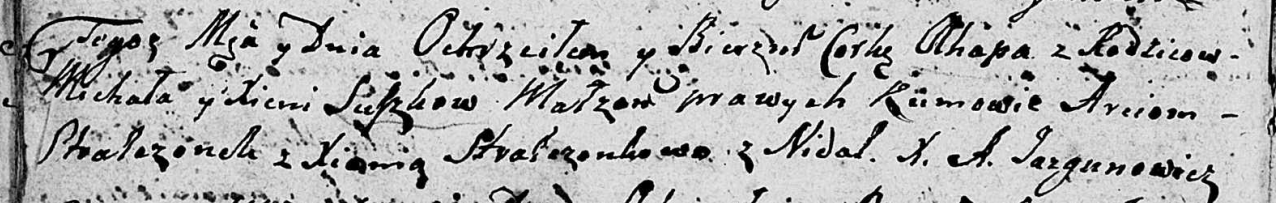 Tegoż Mca y Dnia Ochrzciłem y Bierzm Corkę Ahapa z Rodzicow
Michała y Xieni Suszkow Małżon prawych Kumowie Arciom
Strałczonek z Xienią Strałczonkowo z Nidal. X. A. Jazgunowicz